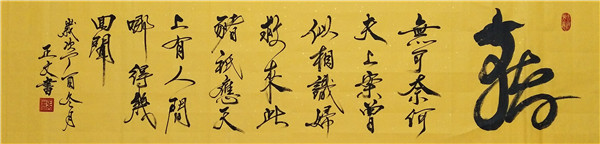 無可奈何
夫上案曾
似相識婦
救來此
豬祇應天
上有人間
哪得幾
回聞
歲次丁酉冬月
正文書